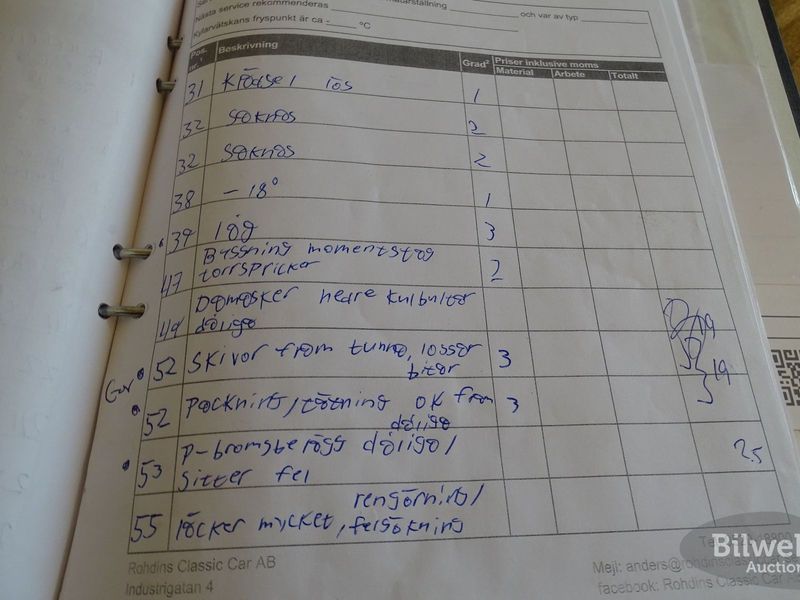 Nästa service rekommenderas
och var av typ
Kylarvätskans fryspunkt är ca - °C
Pos. nr. Beskrivning Grad² Priser inklusive moms
Material Arbete Totalt
31 los 1
32 saknas 2
32 saknas 2
38 -18° 1
39 låg 3
47 Bussning momentstag
torrspricker 2
49 Damasker nedre kulbultar
dåliga
52 Skivor fram tunna, lossar
bitar 3
52 Packning/tätning ok fram
dåliga 3
53 P-bromsbelägg dåliga/
sitter fel 25
rengöring/
55 läcker mycket, felsökning
Rohdins Classic Car AB
Industrigatan 4
Mejl: anders@rohdinsclas
facebook: Rohdins Classic Car
Bilweb
Auctions